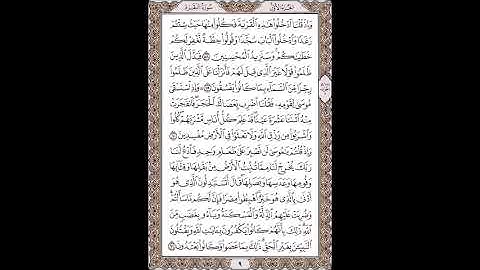 سُورَةُ البَقَرَةِ
الجُزْءُ الأَوَّلُ
وَإِذْ قُلْنَا ٱدْخُلُوا۟ هَٰذِهِ ٱلْقَرْيَةَ فَكُلُوا۟ مِنْهَا حَيْثُ شِئْتُمْ
رَغَدًا وَٱدْخُلُوا۟ ٱلْبَابَ سُجَّدًا وَقُولُوا۟ حِطَّةٌ نَّغْفِرْ لَكُمْ
خَطَٰيَٰكُمْ وَسَنَزِيدُ ٱلْمُحْسِنِينَ ٥٨ فَبَدَّلَ ٱلَّذِينَ
ظَلَمُوا۟ قَوْلًا غَيْرَ ٱلَّذِى قِيلَ لَهُمْ فَأَنزَلْنَا عَلَى ٱلَّذِينَ ظَلَمُوا۟
رِجْزًا مِّنَ ٱلسَّمَآءِ بِمَا كَانُوا۟ يَفْسُقُونَ ٥٩ وَإِذِ ٱسْتَسْقَىٰ
مُوسَىٰ لِقَوْمِهِۦ فَقُلْنَا ٱضْرِب بِّعَصَاكَ ٱلْحَجَرَ فَٱنفَجَرَتْ
مِنْهُ ٱثْنَتَا عَشْرَةَ عَيْنًا قَدْ عَلِمَ كُلُّ أُنَاسٍ مَّشْرَبَهُمْ كُلُوا۟
وَٱشْرَبُوا۟ مِن رِّزْقِ ٱللَّهِ وَلَا تَعْثَوْا۟ فِى ٱلْأَرْضِ مُفْسِدِينَ ٦٠
وَإِذْ قُلْتُمْ يَٰمُوسَىٰ لَن نَّصْبِرَ عَلَىٰ طَعَامٍ وَٰحِدٍ فَٱدْعُ لَنَا
رَبَّكَ يُخْرِجْ لَنَا مِمَّا تُنۢبِتُ ٱلْأَرْضُ مِنۢ بَقْلِهَا وَقِثَّآئِهَا
وَفُومِهَا وَعَدَسِهَا وَبَصَلِهَا قَالَ أَتَسْتَبْدِلُونَ ٱلَّذِى هُوَ
أَدْنَىٰ بِٱلَّذِى هُوَ خَيْرٌ ٱهْبِطُوا۟ مِصْرًا فَإِنَّ لَكُم مَّا سَأَلْتُمْ
وَضُرِبَتْ عَلَيْهِمُ ٱلذِّلَّةُ وَٱلْمَسْكَنَةُ وَبَآءُو بِغَضَبٍ مِّنَ
ٱللَّهِ ذَٰلِكَ بِأَنَّهُمْ كَانُوا۟ يَكْفُرُونَ بِـَٔايَٰتِ ٱللَّهِ وَيَقْتُلُونَ
ٱلنَّبِيِّـۧنَ بِغَيْرِ ٱلْحَقِّ ذَٰلِكَ بِمَا عَصَوا۟ وَّكَانُوا۟ يَعْتَدُونَ ٦١
٩